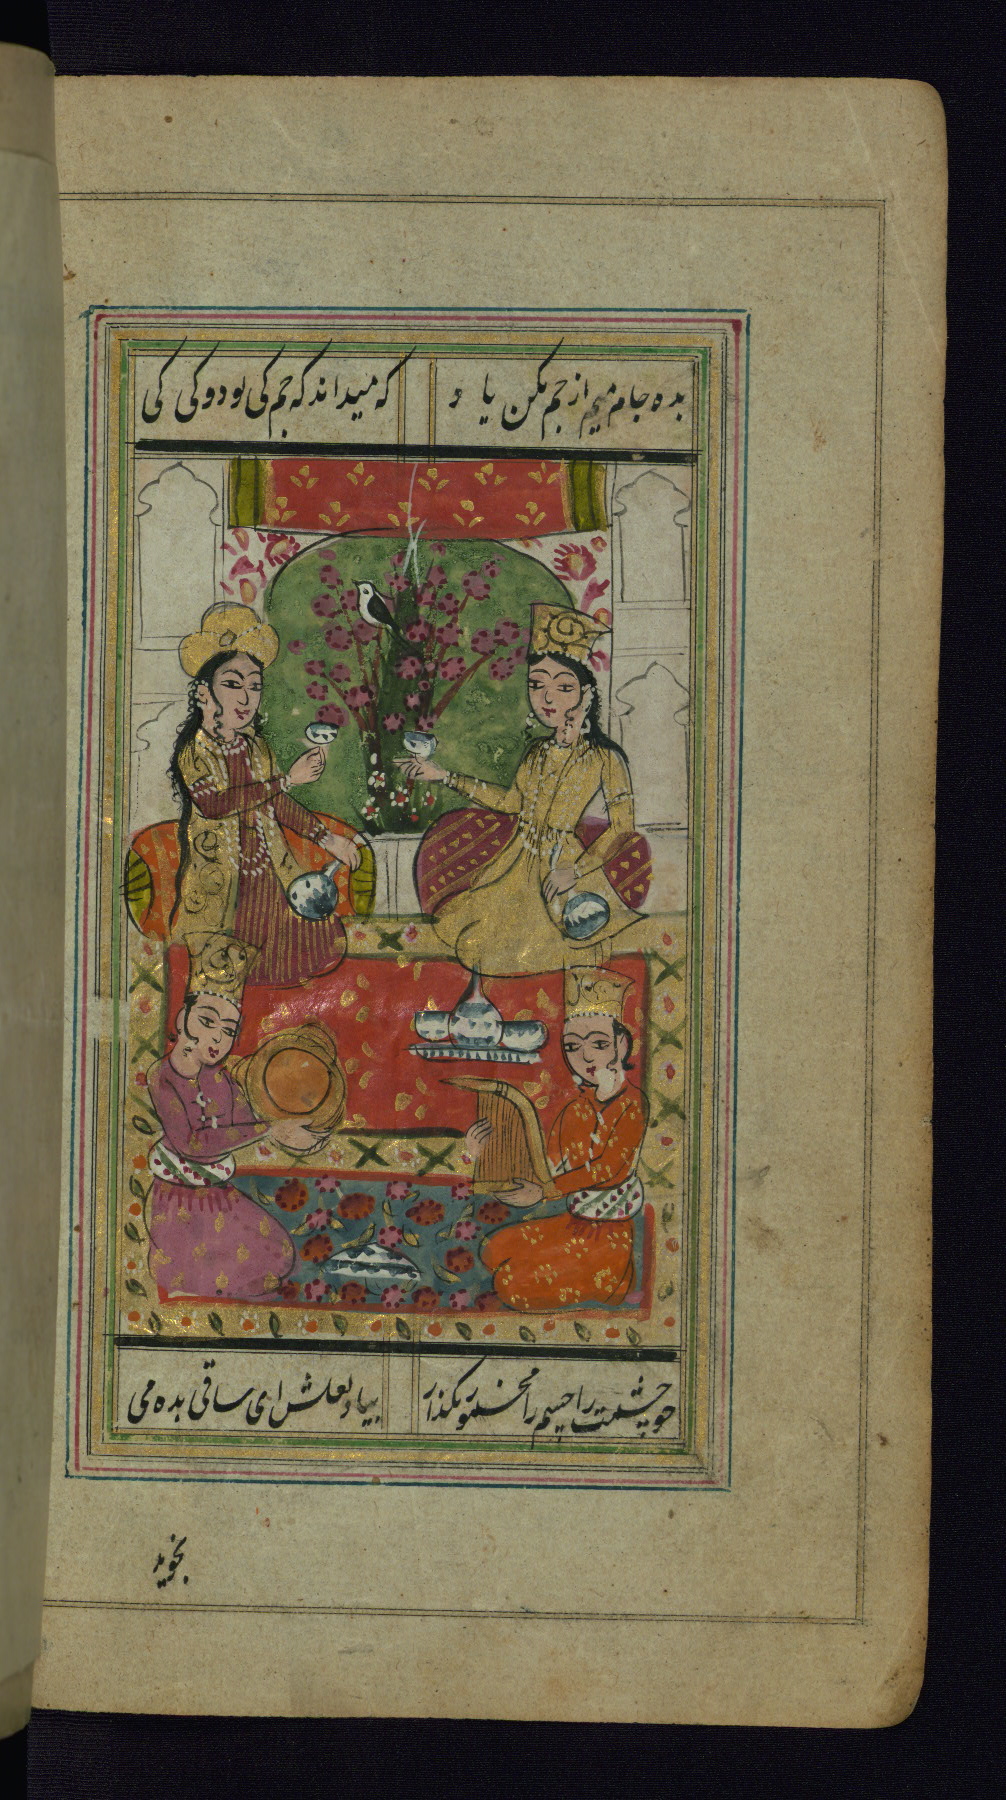 بده جام میم از جم مکن یاد
که میداند که جم کی بود و کی کی
چو چشمت را چیم را مخمور مگذار
بیاد لعلش ای ساقی بده می
بخوید